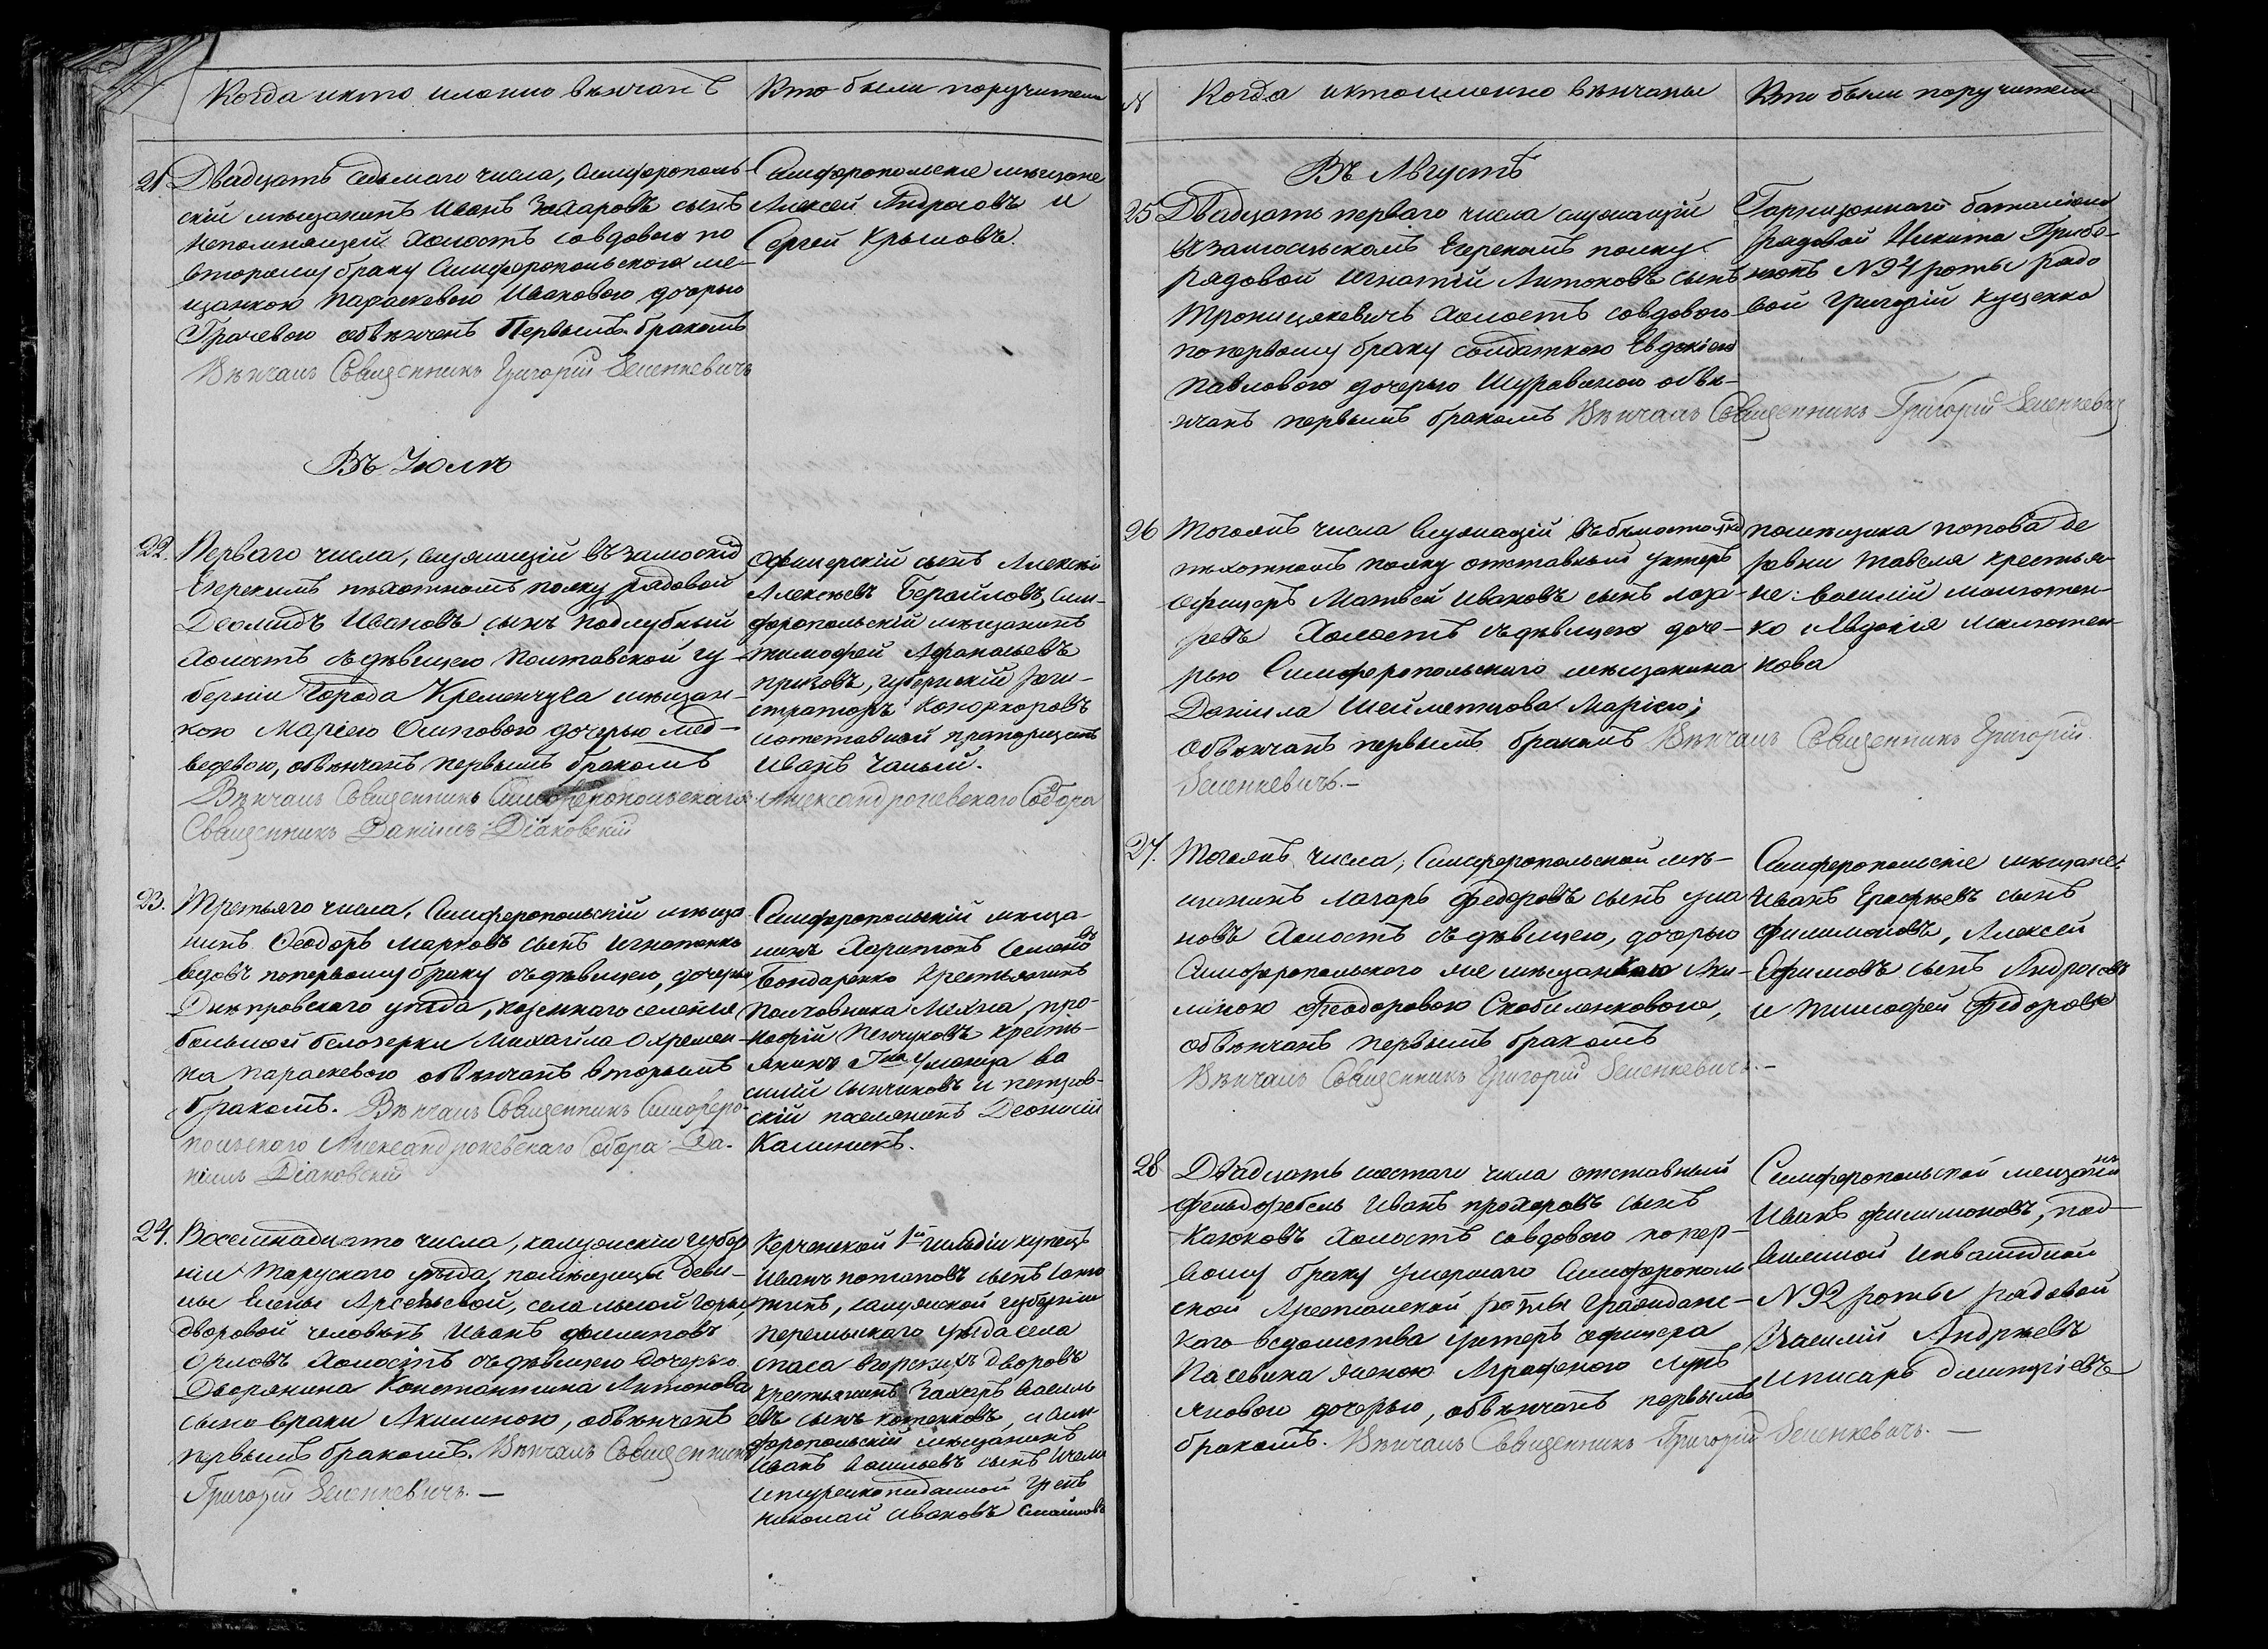 Когда икто имянно вѣнчанъ
Кто были поручители
21 Двадцать седьмаго числа, Симферополь-
скій мещанинъ Иванъ Захаровъ сынъ
Непомнящей Холостъ совдовою по
второму браку Симферопольскою ме-
щанкою Параскевою Ивановою дочерью
Грачевою обвѣнченъ Первымъ бракомъ
Вѣнчалъ Священникъ Григорій Зеленкевичъ
Симферопольскіе мѣщане
Алексей Андросовъ и
Сергей Крымовъ.
Въ Іюлѣ
22. Перваго числа, служащій въ замоскій
Егерскимъ пѣхотномъ полку рядовой
Деомидъ Ивановъ сынъ Подлубный
Холостъ съдѣвицею Полтавской гу-
берніи Города Кременчуга мѣщан-
кою Маріею Осиповою дочерью Мед-
ведевою, обвѣнчанъ первымъ бракомъ
Вѣнчалъ Священникъ Симферопольскаго Александроневскаго Собора
Священникъ Даніилъ Діаковскій
Офицерскій сынъ Алексѣй
Алексѣевъ Сим-
феропольскій мѣщанинъ
тимофей Афанасьевъ
призовъ, губернскій реги-
страторъ
иотставной прапорщикъ
Иванъ Чалый.
23. Третьяго числа, Симферопольскій мѣща
нинъ Феодоръ Марковъ сынъ Игнатенко
вдовъ попервому браку съдѣвицею, дочерью
Днѣпровскаго уѣзда, казеннаго селенія
большой белозерки Михайла Охремен-
ка параскевою обвѣнчанъ вторымъ
бракомъ. Вѣнчалъ Священникъ Симферо-
польскаго Александроневскаго Собора Да-
ніилъ Діаковскій
Симферопольскій мѣща-
нинъ Харитонъ Семеновъ
Бондаренко Крестьянинъ
Полковника про-
кофій Пенчуковъ кресть-
янинъ ва
силій и петров-
скій поселянинъ Деонисій
Калиникъ.
24. Восемнадцато числа, калужскіи губер
ніи Тарускаго уѣзда помѣщицы деви-
цы Елены Арсеньевой, села лысой горы
дворовой человѣкъ Иванъ филиповъ
Орловъ Холостъ съдѣвицею дочерью
Дворянина Константина Антонова
сына враки Акилиною, обвѣнченъ
первымъ бракомъ. Вѣнчалъ Священникъ
Григорій Зеленкевичъ. —
Керченской 1й гильдіи купецъ
Иванъ потаповъ сынъ
калужской губерніи
перемыскаго уѣзда села
спаса дворовъ
Крестьянинъ Захаръ Василь
евъ сынъ котенковъ, и Сим
феропольскій мѣщанинъ
Иванъ Васильевъ сынъ
грекъ
Николай Ивановъ
N Когда иктоименно вѣнчаны
Кто были поручители
Въ Августѣ
25 Двадцать перваго числа служащій
Взамосцьскомъ Егерскомъ полку
рядовой Игнатій Антоновъ сынъ
Троницкевичъ Холостъ совдовою
попервому браку солдаткою Евдокіею
Павловою дочерью Шуравскою обвѣ-
нчанъ первымъ бракомъ Вѣнчалъ Священникъ Григорій Зеленкевич
Гарнизоннаго баталіона
рядовой Никита Грибо-
нюкъ N 94 роты рядо
вой Григорій Куценко
26 Тогожъ числа Служащій въбѣлостоцко
пѣхотномъ полку отставный унтеръ
офицеръ Матвей Ивановъ сынъ лаза-
ревъ Холостъ съдѣвицею доче-
рью Симферопольскаго мѣщанина
Даніила Шейметцова Маріею;
Обвѣнчанъ первымъ бракомъ Вѣнчалъ Священникъ Григорій
Зеленкевичъ.—
помещика попова де
ревни тавеля крестья-
не: василій малютен-
ко иАвдокія Малютен
кова
27. Тогожъ, числа, Симферопольской мѣ-
щининъ лазарь федоровъ сынъ ула
новъ Холостъ съдѣвицею, дочерью
Симферопольскаго же мѣщанкою Аки-
линою Феодоровою Скобиленковою,
обвѣнчанъ первымъ бракомъ
Вѣнчалъ Священникъ Григорій Зеленкевичъ.—
Симферопольскіе мѣщане:
Иванъ Ерофѣевъ сынъ
филимоновъ, Алексей
Ефимовъ сынъ Андросовъ
и тимофей Федоровъ
28 Двадцать шестаго числа отставный
фельдфебель Иванъ прохоровъ сынъ
Каюковъ Холостъ совдовою попер-
вому браку умершаго Симферополь
ской Арестанской роты Гражданс-
каго ведомства унтеръ офицера
Пасевина женою Аграфеною Лукъ
яновою дочерью, обвѣнчанъ первымъ
бракомъ. Вѣнчалъ Священникъ Григорій Зеленкевичъ. —
Симферопольской мещанинъ
Иванъ филимоновъ, под-
вижной Инвалидной
N 92 роты рядовой
Василій Андрѣевъ
иписарь дмитріевъ